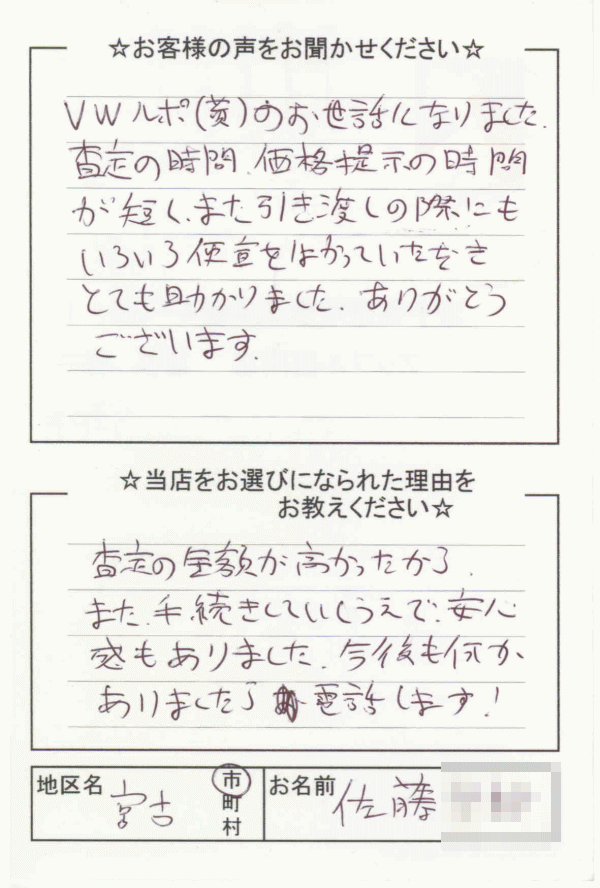 ☆お客様の声をお聞かせください☆
VWルポ(黄)のお世話になりました.
査定の時間.価格提示の時間
が短く、また引き渡しの際にも
いろいろ便宜をはかっていただき
とても助かりました.ありがとう
ございます.
☆当店をお選びになられた理由を
お教えください☆
査定の金額が高かったから.
また.手続きしていくうえで.安心
感もありました.今後も何か
ありましたら電話します!
地区名 宮古 市
町
村
お名前 佐藤